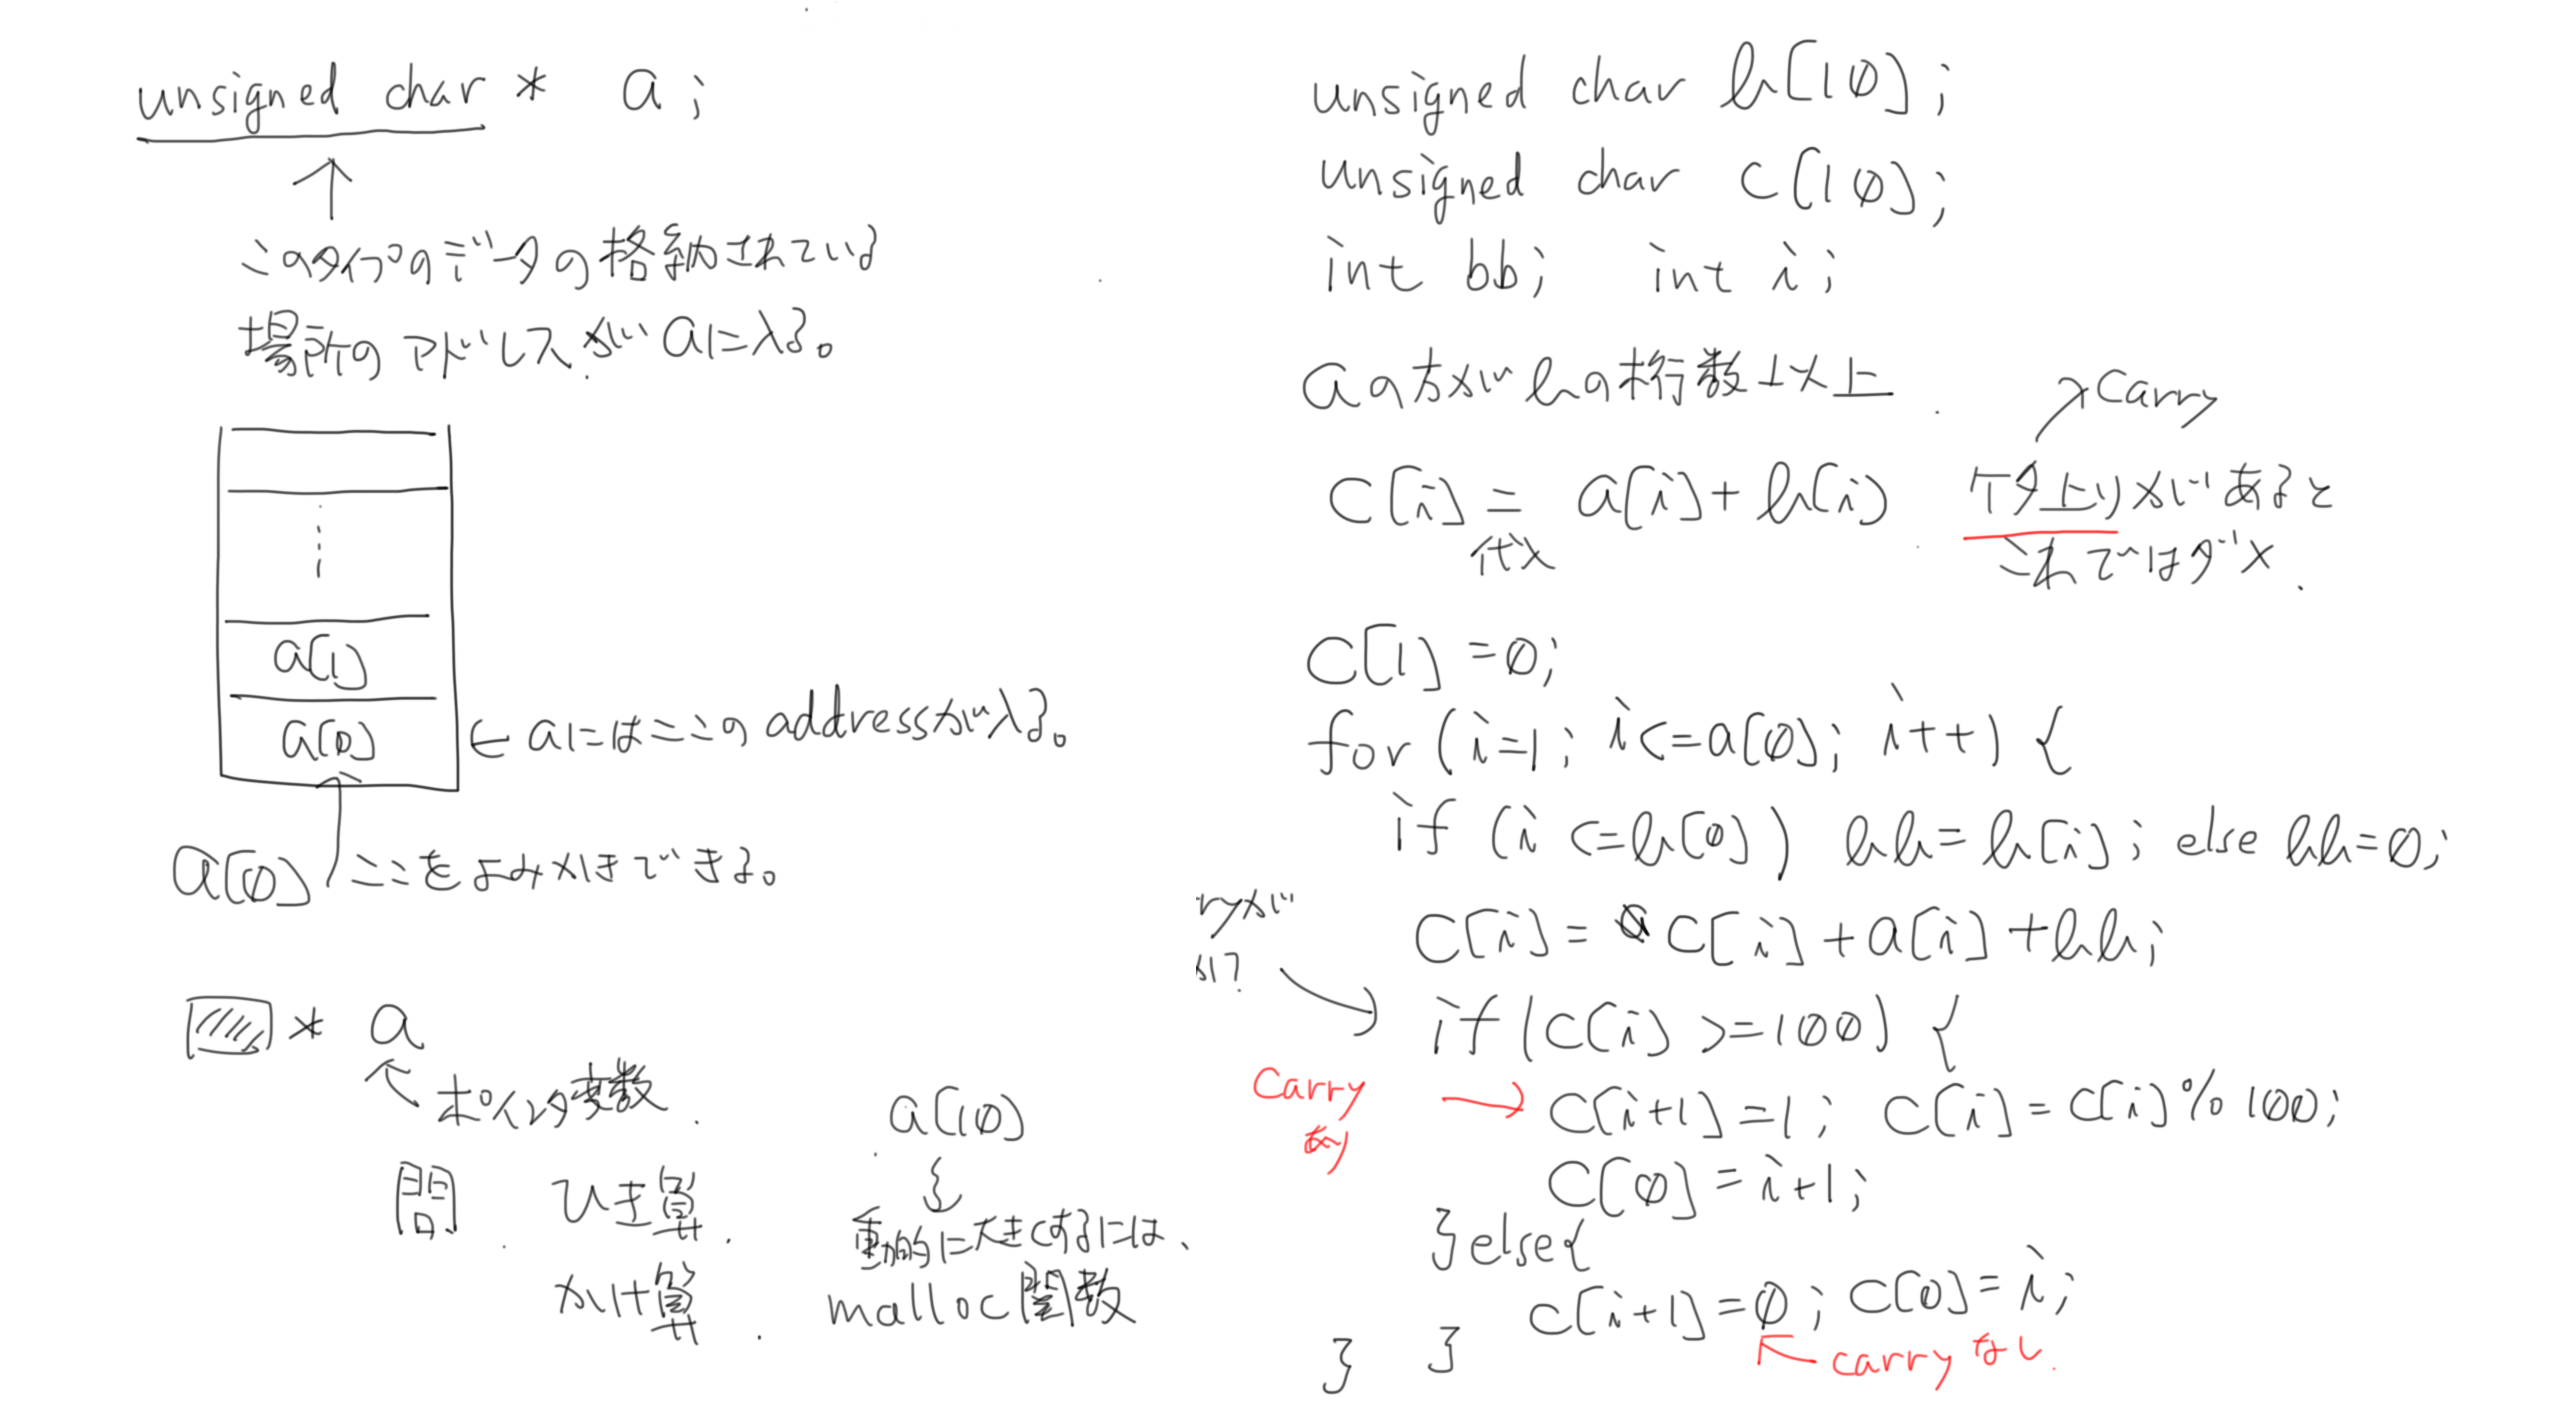 unsigned char * a;
↑
このタイプのデータの格納されている
場所のアドレスがaに入る。
a[1]
a[0] ← aにはここのaddressが入る。
a[0] ここをよみかきできる。
* a
ポインタ変数.
問. ひき算.
かけ算.
a[10]
動的に大きくするには、
malloc関数
unsigned char b[10];
unsigned char c[10];
int bb; int i;
aの方がbの桁数以上.
→Carry
c[i] = a[i]+b[i] ケタ上りがあると
代入 これではダメ.
c[1]=0;
for(i=1; i<=a[0]; i++){
if (i<=b[0]) bb=b[i]; else bb=0;
ryが
c[i]= c[i]+a[i]+bb;
if(c[i]>=100){
Carry → c[i+1]=1; c[i]=c[i]%100;
あり
c[0]=i+1;
}else{
c[i+1]=0; c[0]=i;
} }
carryなし.